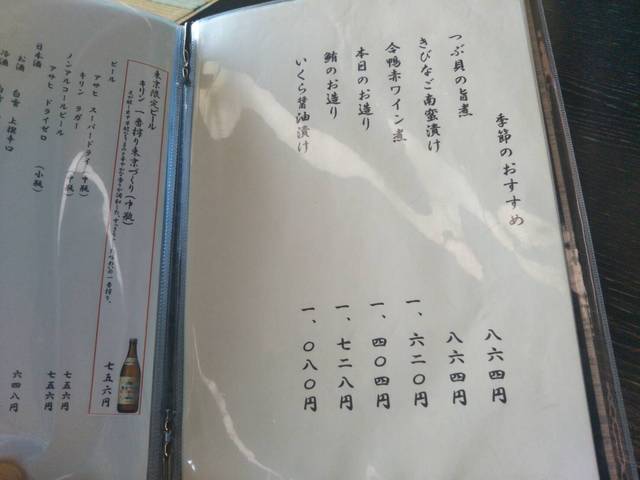 季節のおすすめ
つぶ貝の旨煮 八六四円
きびなご南蛮漬け 八六四円
合鴨赤ワイン煮 一、六二〇円
本日のお造り 一、四〇四円
鮪のお造り 一、七二八円
いくら醤油漬け 一、〇八〇円
東京限定ビール
キリン 一番搾り東京づくり(中瓶) 七五六円
ビール
アサヒ スーパードライ(中瓶) 七五六円
キリン ラガー 七五六円
ノンアルコールビール
アサヒ ドライゼロ (小瓶) 六四八円
日本酒
お酒 白雪 上撰辛口
冷酒